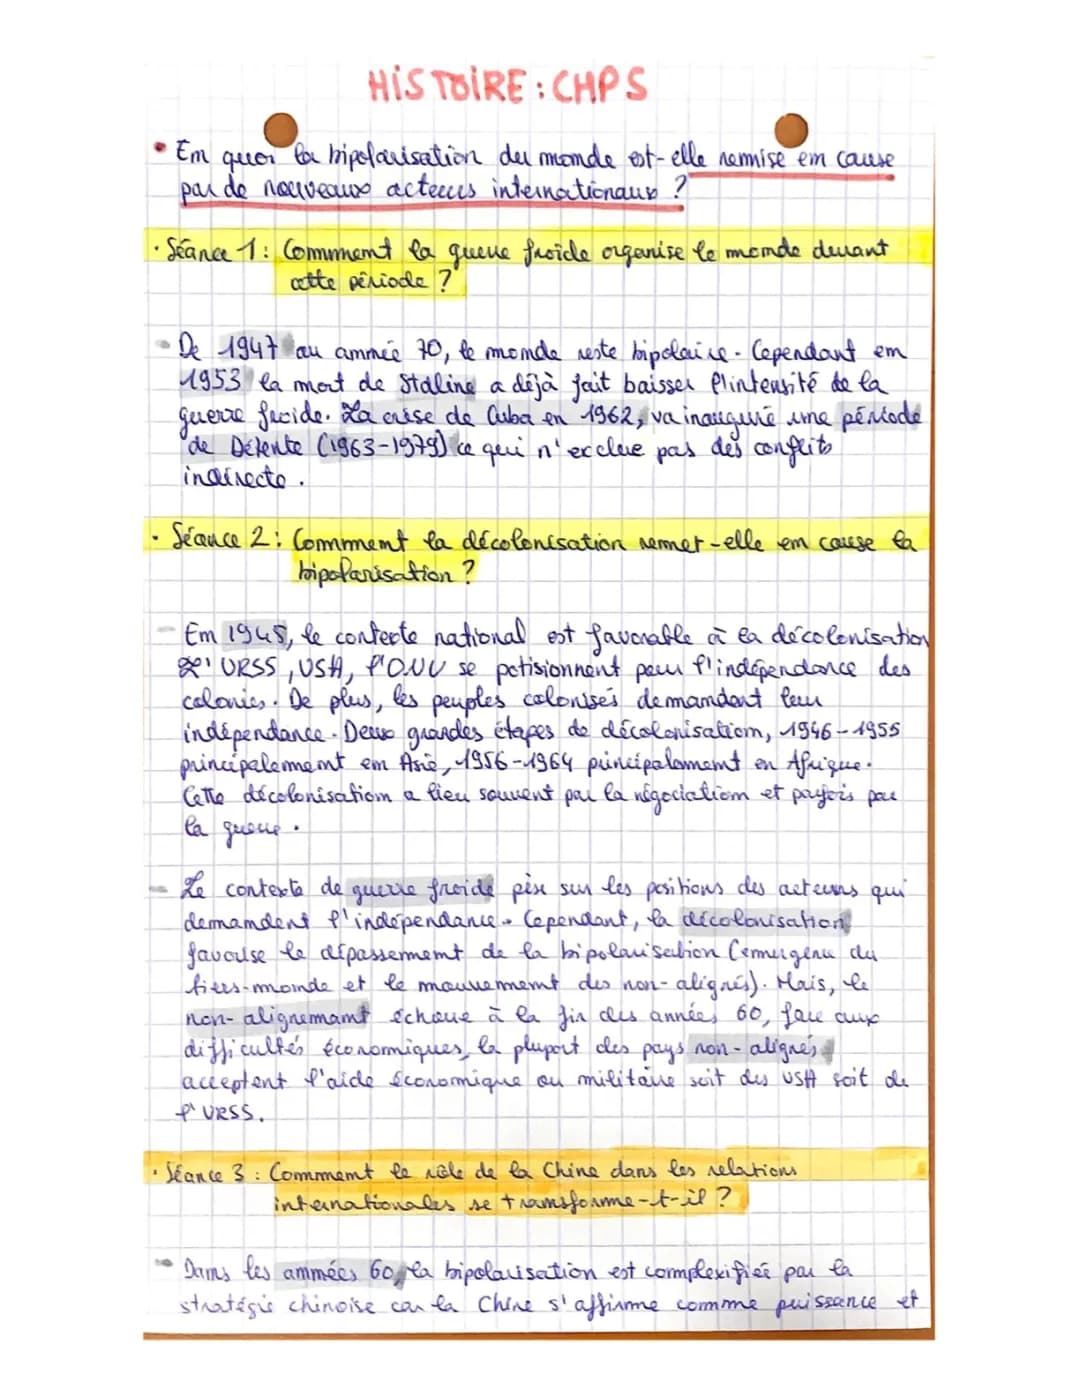 HISTOIRE : CHP5
• En quoi la bipolarisation du monde est-elle remise en cause
par de nouveaux acteurs internationaux ?
• Séance 1 : Comment la guerre froide organise le monde durant
cette période ?
- De 1947 au année 70, le monde reste bipolaire. Cependant en
1953 la mort de Staline a déjà fait baisser l'intensité de la
guerre froide. La crise de Cuba en 1962, va inauguré une période
de Détente (1963-1979) ce qui n'exclue pas des conflits
indirecte.
• Séance 2 : Comment la décolonisation remet-elle en cause la
bipolarisation ?
- En 1945, le contexte national est favorable à la décolonisation
L'URSS, USA, l'ONU se potisionnent pour l'indépendance des
colonies. De plus, les peuples colonisés demandent leur
indépendance. Deux grandes étapes de décolonisation, 1946-1955
principalement en Asie, 1956-1964 principalement en Afrique.
Cette décolonisation a lieu souvent par la négociation et parfois par
la guerre.
- Le contexte de guerre froide pèse sur les positions des acteurs qui
demandent l'indépendance. Cependant, la décolonisation
favorise le dépassement de la bipolarisation (émergence du
tiers-monde et le mouvement des non-alignés). Mais, le
non-alignemant échoue à la fin des années 60, face aux
difficultés économiques, la plupart des pays non-alignés
acceptent l'aide économique ou militaire soit des USA soit de
l'URSS.
• Séance 3 : Comment le rôle de la Chine dans les relations
internationales se transforme-t-il ?
- Dans les années 60, la bipolarisation est complexifiée par la
stratégie chinoise car la Chine s'affirme comme puissance et